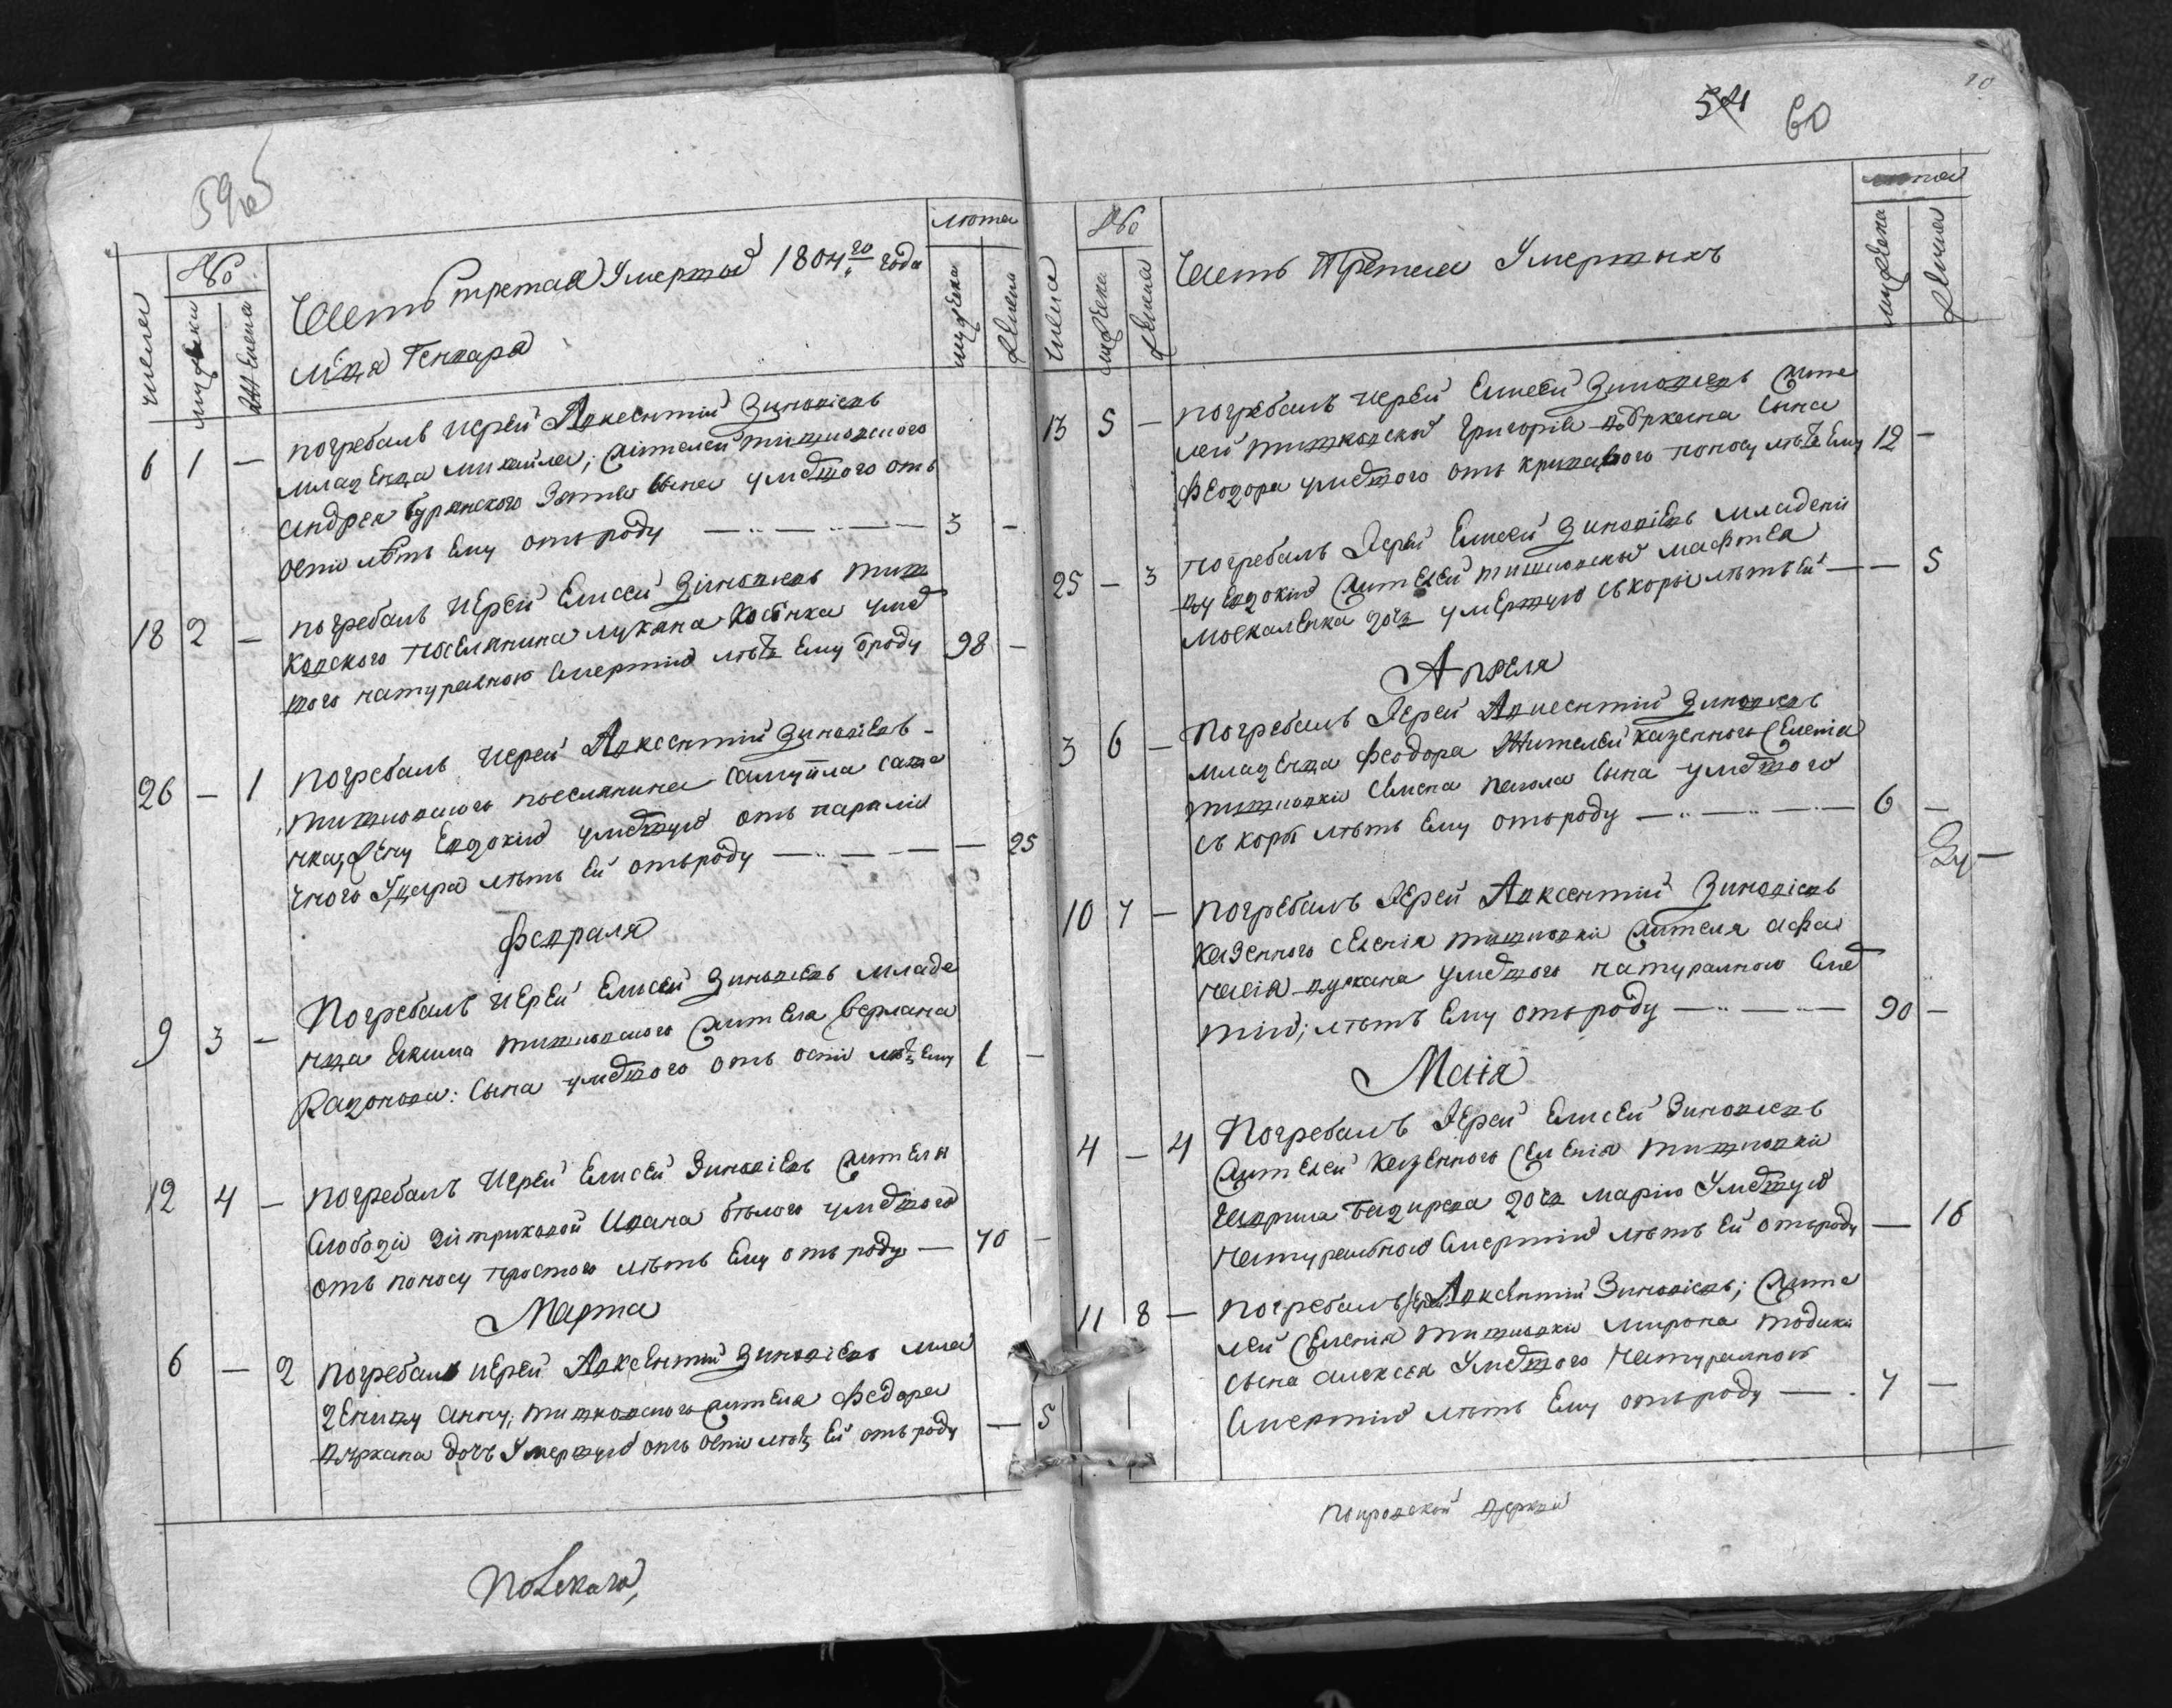 59об
числа
№
мужеска
женска
Часть третая Умершыхъ 1804го года
лѣта
мужеска
женска
мца Генвара
6 1 — погребалъ иерей Авксентий Зиновіевъ
младенца михаила; жителей тишковского
андрея бурянского Зятя сына умершого отъ
оспи лѣтъ ему отъ роду — 3 —
18 2 — погребалъ иерей Елисей Зиновіевъ тиш
ковского поселянина лукяна умер
шого натуралною смертию лѣтъ ему 98 —
26 — 1 погребалъ иерей Авксентий Зиновіевъ
тишковского поселянина самуила
жену Евдокию умершую отъ парали
чного удара лѣтъ ей отъ роду — — 25
Февраля
9 3 — Погребалъ иерей Елисей Зиновіевъ младе
нца екима тишковского жителя
Радонова: сына умершого отъ оспи лѣтъ ему 1 —
12 4 — погребалъ иерей Елисей Зиновіевъ жителя
слободи Ивана бѣлого умершого
отъ поносу простого лѣтъ ему отъ роду — 70 —
Марта
6 — 2 погребалъ иерей Авксентий Зиновіевъ мла
деницу анну; тишковского жителя федора
дочъ Умершую отъ оспи лѣтъ ей отъ роду — 5
54 60
числа
№
мужеска
женска
Часть Третая Умершыхъ
лѣта
мужеска
женска
13 5 — погребалъ иерей Елисей Зиновіевъ жите
лей тишковской григория сына
феодора умершого отъ кривавого поносу лѣтъ ему 12 —
25 — 3 погребалъ Іерей Елисей Зиновіевъ младени
цу евдокию жителей тишковской матфея
москаленка дочь умершую съ кори лѣтъ ей — — 5
Апреля
3 6 — Погребалъ Іерей Авксентий Зиновіевъ
младенца феодора жителей казенного селения
тишковки сына умершого
съ кори лѣтъ ему отъ роду — 6 —
10 7 — погребалъ Іерей Авксентий Зиновіевъ
казенного селенія тишковки жителя афа
насія умершого натуралною смер
тию; лѣтъ ему отъ роду — 90 —
Маія
4 — 4 Погребалъ Іерей Елисей Зиновіевъ
жителей казенного селенія тишковки
дочь марию Умершую
натуральною смертию лѣтъ ей отъ роду — 16
11 8 — погребалъ іерей Авксентий Зиновіевъ; жите
лей селенія тишковки мирона
сына алексея Умершого натуралною
смертию лѣтъ ему отъ роду — 7 —
Покровской церкви